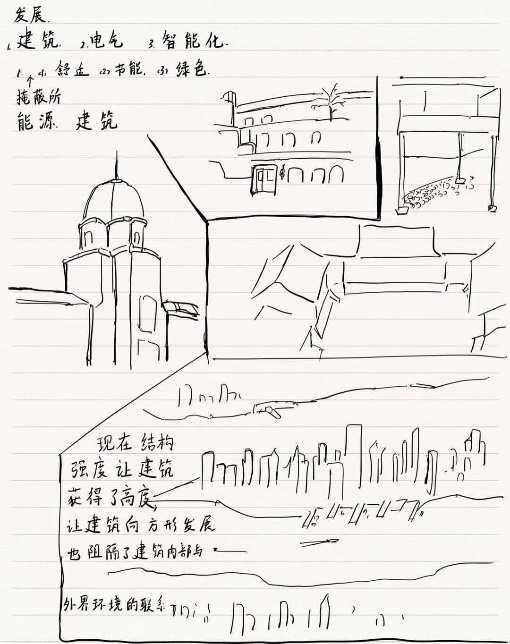 发展.
1. 建筑. 2. 电气 3. 智能化.
1. ↑ (1) 舒适 (2) 节能. (3) 绿色.
掩蔽所
能源. 建筑
现在 结构
强度 让 建筑
获得了高度,
让建筑向方形发展
也阻隔了建筑内部与
外界环境的联系